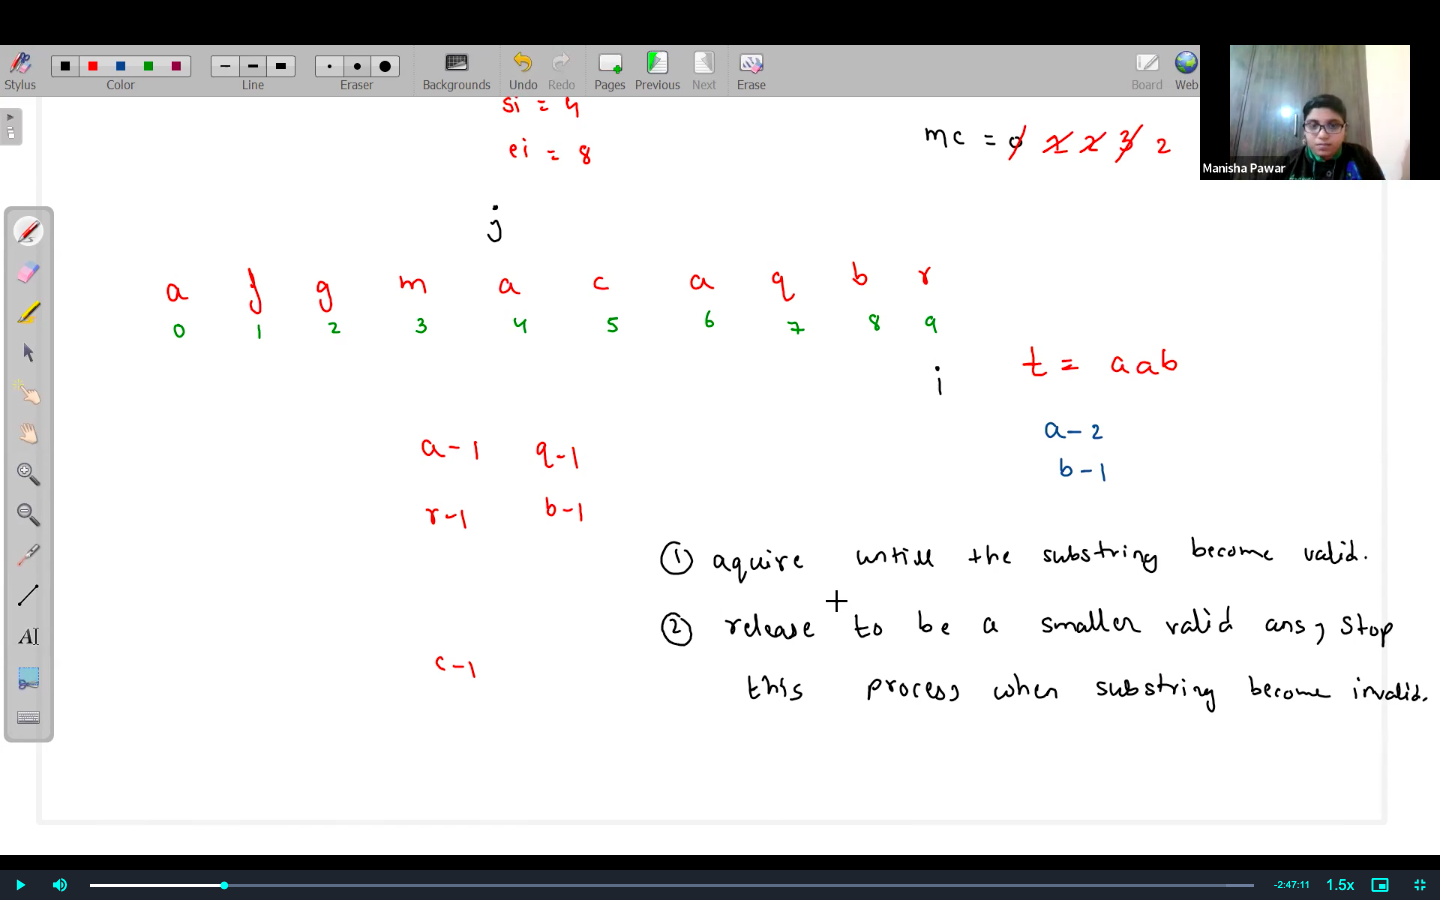 Stylus Color Line Eraser Backgrounds Undo Redo Pages Previous Next Erase Board Web
si = 4
ei = 8
mc = 0 1 2 3 2
Manisha Pawar
j
a f g m a c a q b r
0 1 2 3 4 5 6 7 8 9
i
t = aab
a - 2
b - 1
a - 1 q - 1
r - 1 b - 1
① aquire untill the substring become valid.
② release to be a smaller valid ans, stop
this process when substring become invalid.
c - 1
AI
-2:47:11 1.5x